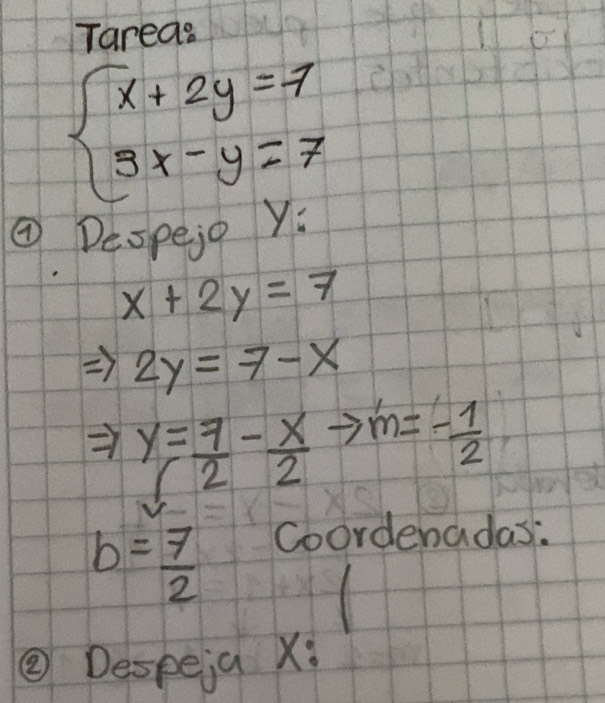 Tarea:
x + 2y = 7
3x - y = 7
① Despejo y:
x + 2y = 7
⇒ 2y = 7 - x
⇒ y = 7/2 - x/2 → m = -1/2
b = 7/2 Coordenadas:
(
② Despeja x: